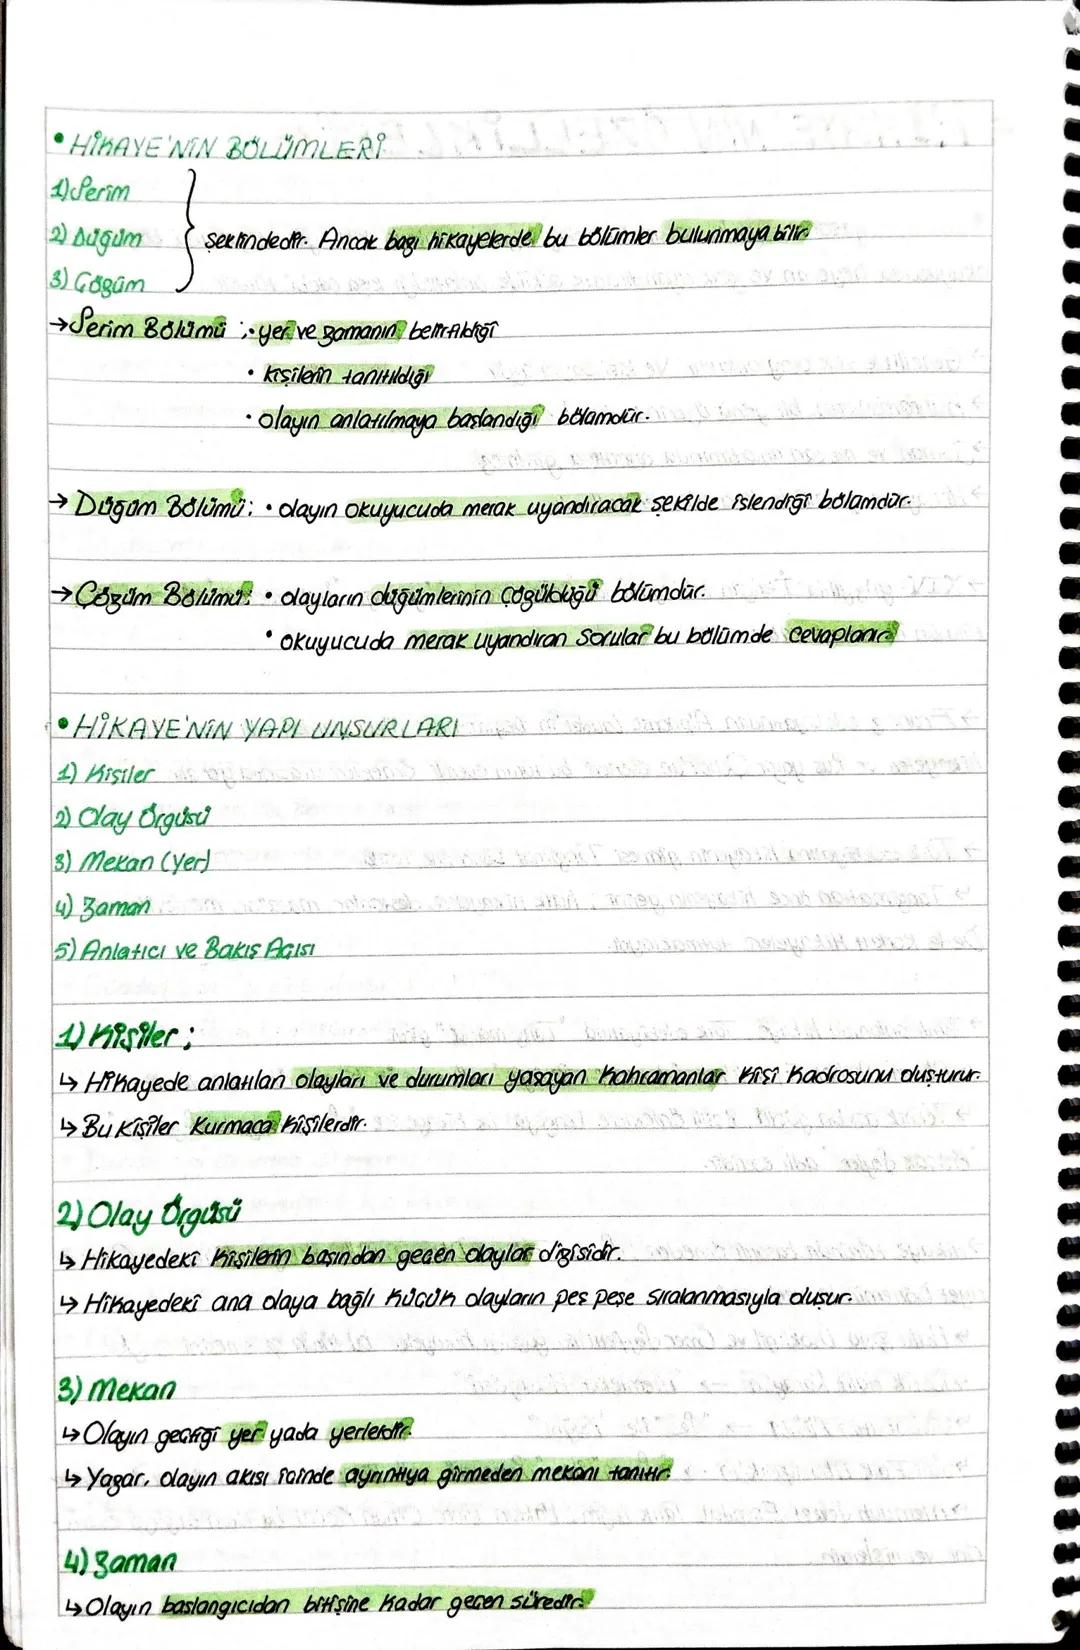 • HİKAYE'NİN BÖLÜMLERİ
1) Serim
2) Düğüm
3) Çözüm
şeklindedir. Ancak bazı hikayelerde bu bölümler bulunmaya bilir.
→ Serim Bölümü ; • yer ve zamanın belirtildiği
• kişilerin tanıtıldığı
• olayın anlatılmaya başlandığı bölümdür.
→ Düğüm Bölümü: • olayın okuyucuda merak uyandıracak şekilde işlendiği bölümdür.
→ Çözüm Bölümü: • olayların düğümlerinin çözüldüğü bölümdür.
• okuyucuda merak uyandıran sorular bu bölümde cevaplanır.
• HİKAYE'NİN YAPI UNSURLARI
1) Kişiler
2) Olay Örgüsü
3) Mekan (Yer)
4) Zaman
5) Anlatıcı ve Bakış Açısı
1) Kişiler ;
↳ Hikayede anlatılan olayları ve durumları yaşayan kahramanlar kişi kadrosunu oluşturur.
↳ Bu kişiler kurmaca kişilerdir.
2) Olay Örgüsü
↳ Hikayedeki kişilerin başından geçen olaylar dizisidir.
↳ Hikayedeki ana olaya bağlı küçük olayların peş peşe sıralanmasıyla oluşur.
3) Mekan
↳ Olayın geçtiği yer yada yerlerdir.
↳ Yazar, olayın akışı içinde ayrıntıya girmeden mekanı tanıtır.
4) Zaman
↳ Olayın başlangıcıdan bitişine kadar geçen süredir.